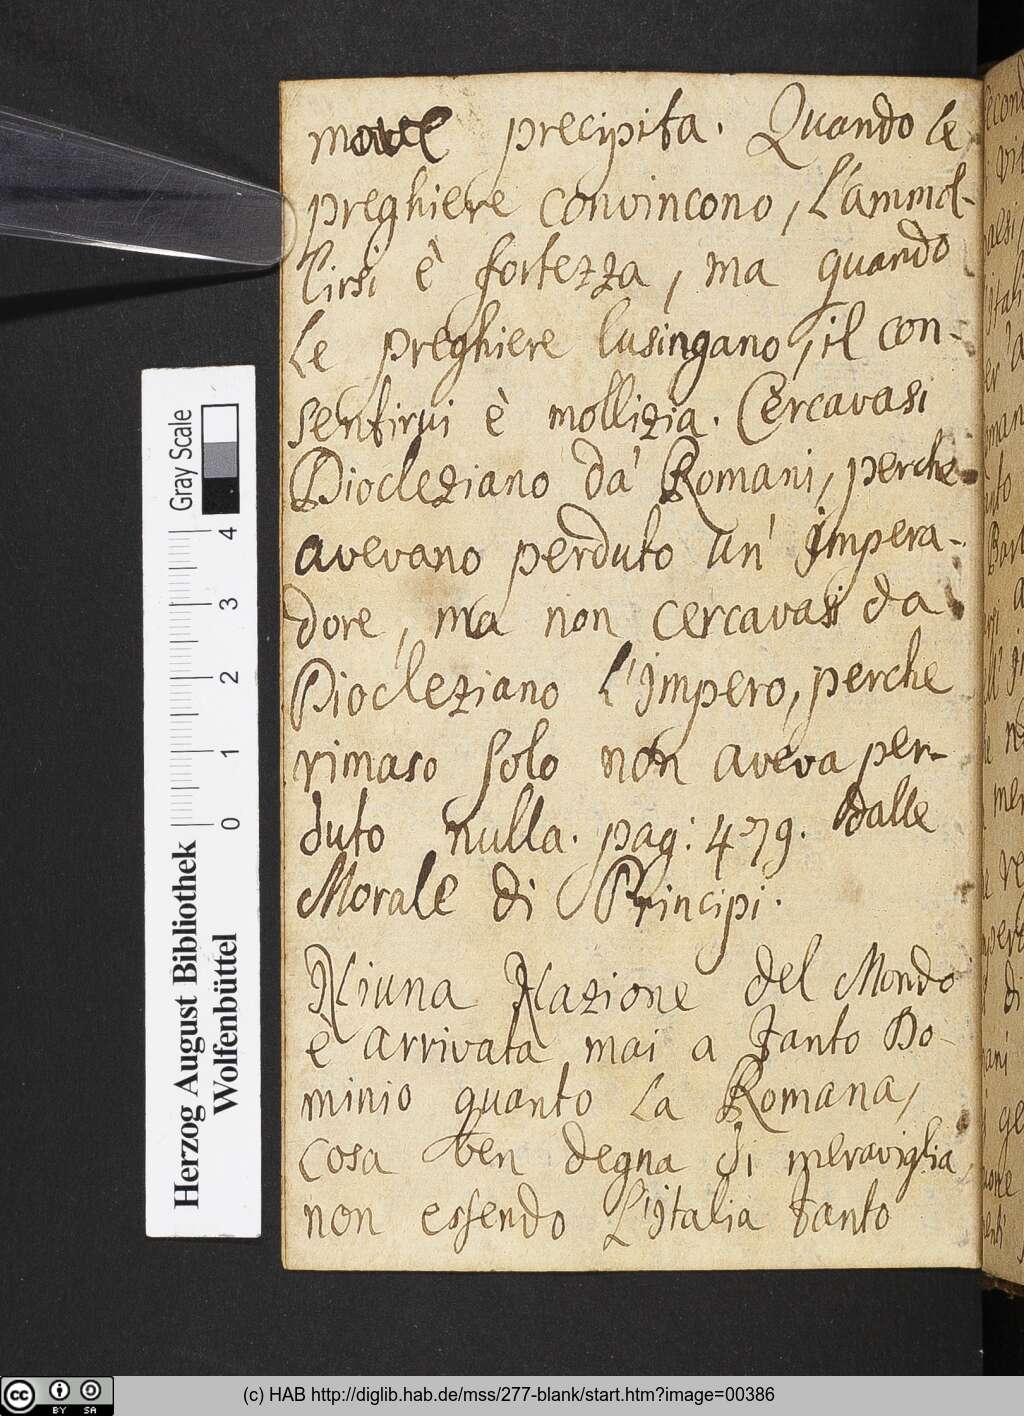 move precipita. Quando le
preghiere convincono, l'ammol-
lirsi è fortezza, ma quando
le preghiere lusingano, il con-
sentirvi è mollizia. Cercavasi
Diocleziano da' Romani, perche
avevano perduto un' Impera-
dore, ma non cercavasi da
Diocleziano l'Impero, perche
rimaso solo non aveva per-
duto nulla. pag: 479. dalle
Morale di Principi.
Niuna Nazione del Mondo
è arrivata mai a tanto Do-
minio quanto la Romana,
cosa ben degna di meraviglia,
non essendo l'Italia tanto
Gray Scale
4
3
2
1
0
Herzog August Bibliothek
Wolfenbüttel
cc BY SA
(c) HAB http://diglib.hab.de/mss/277-blank/start.htm?image=00386